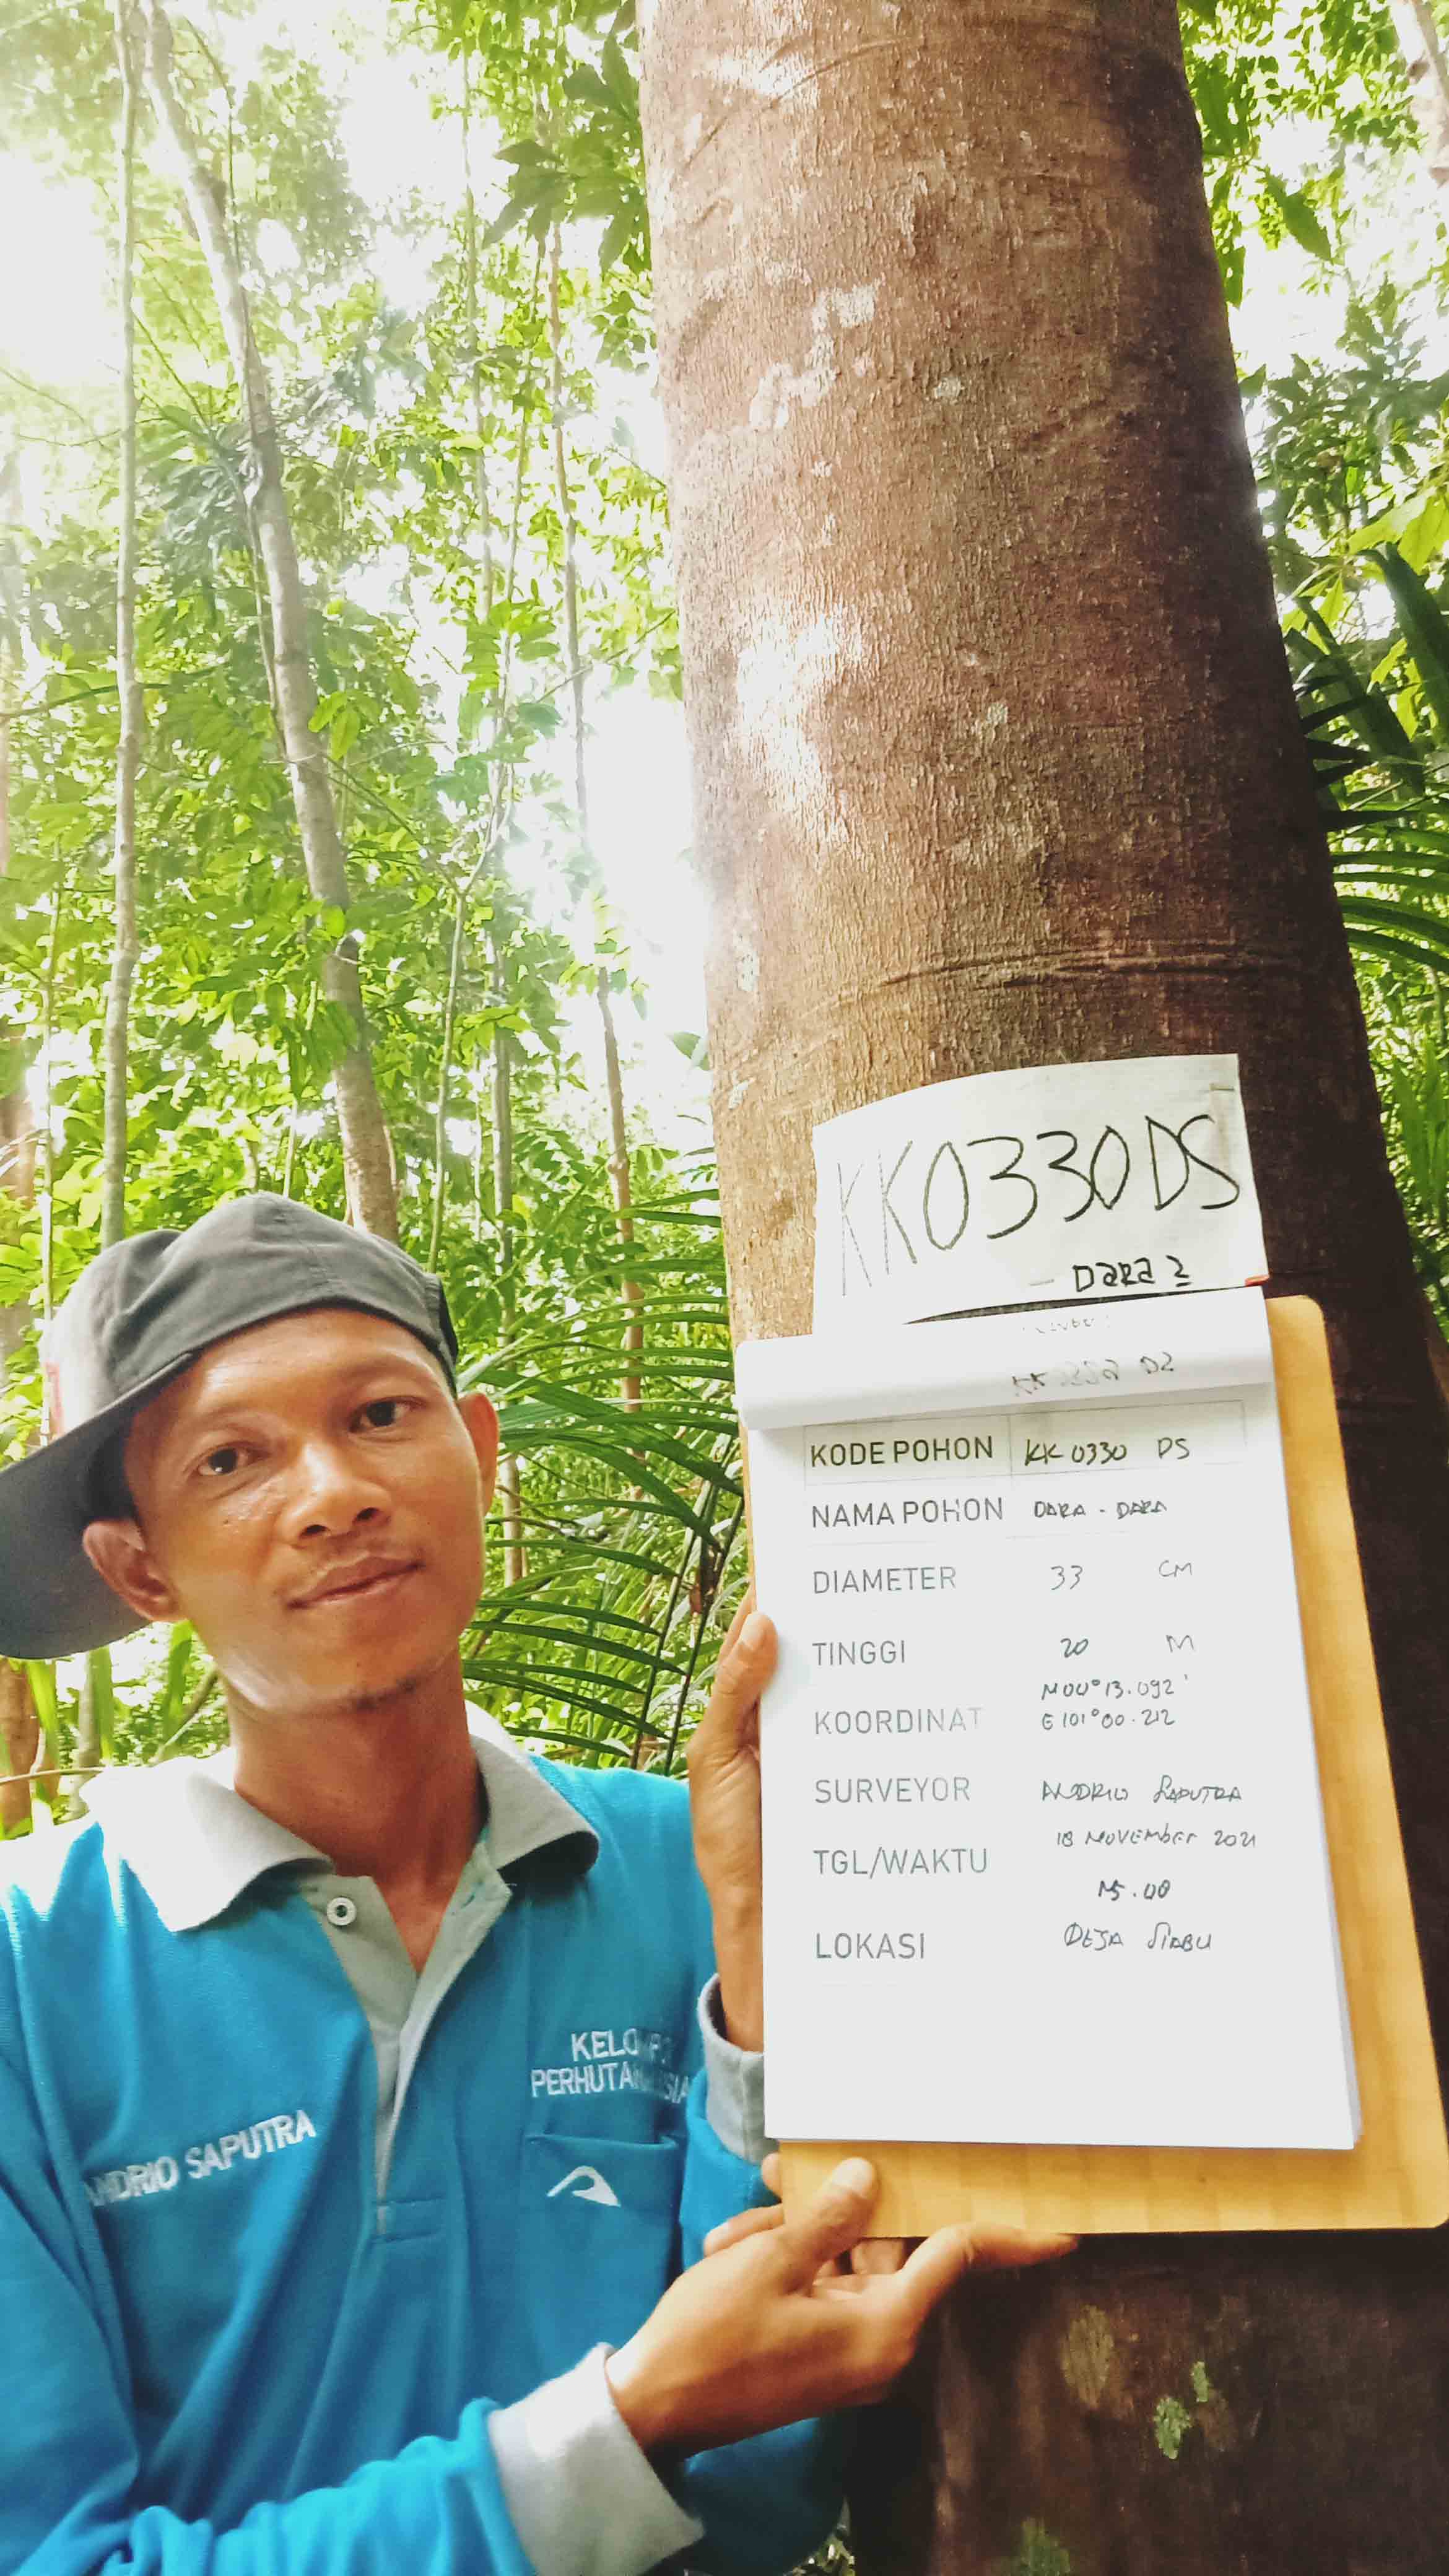 KK0330DS
- Dara 2
KK DS
KODE POHON KK 0330 DS
NAMA POHON DARA - DARA
DIAMETER 33 CM
TINGGI 20 M
KOORDINAT N00°13.092'
E101°00.212
SURVEYOR ANDRIO SAPUTRA
TGL/WAKTU 18 NOVEMBER 2021
15.00
LOKASI DESA SIABU
KELOMPO
PERHUTA SIA
ANDRIO SAPUTRA